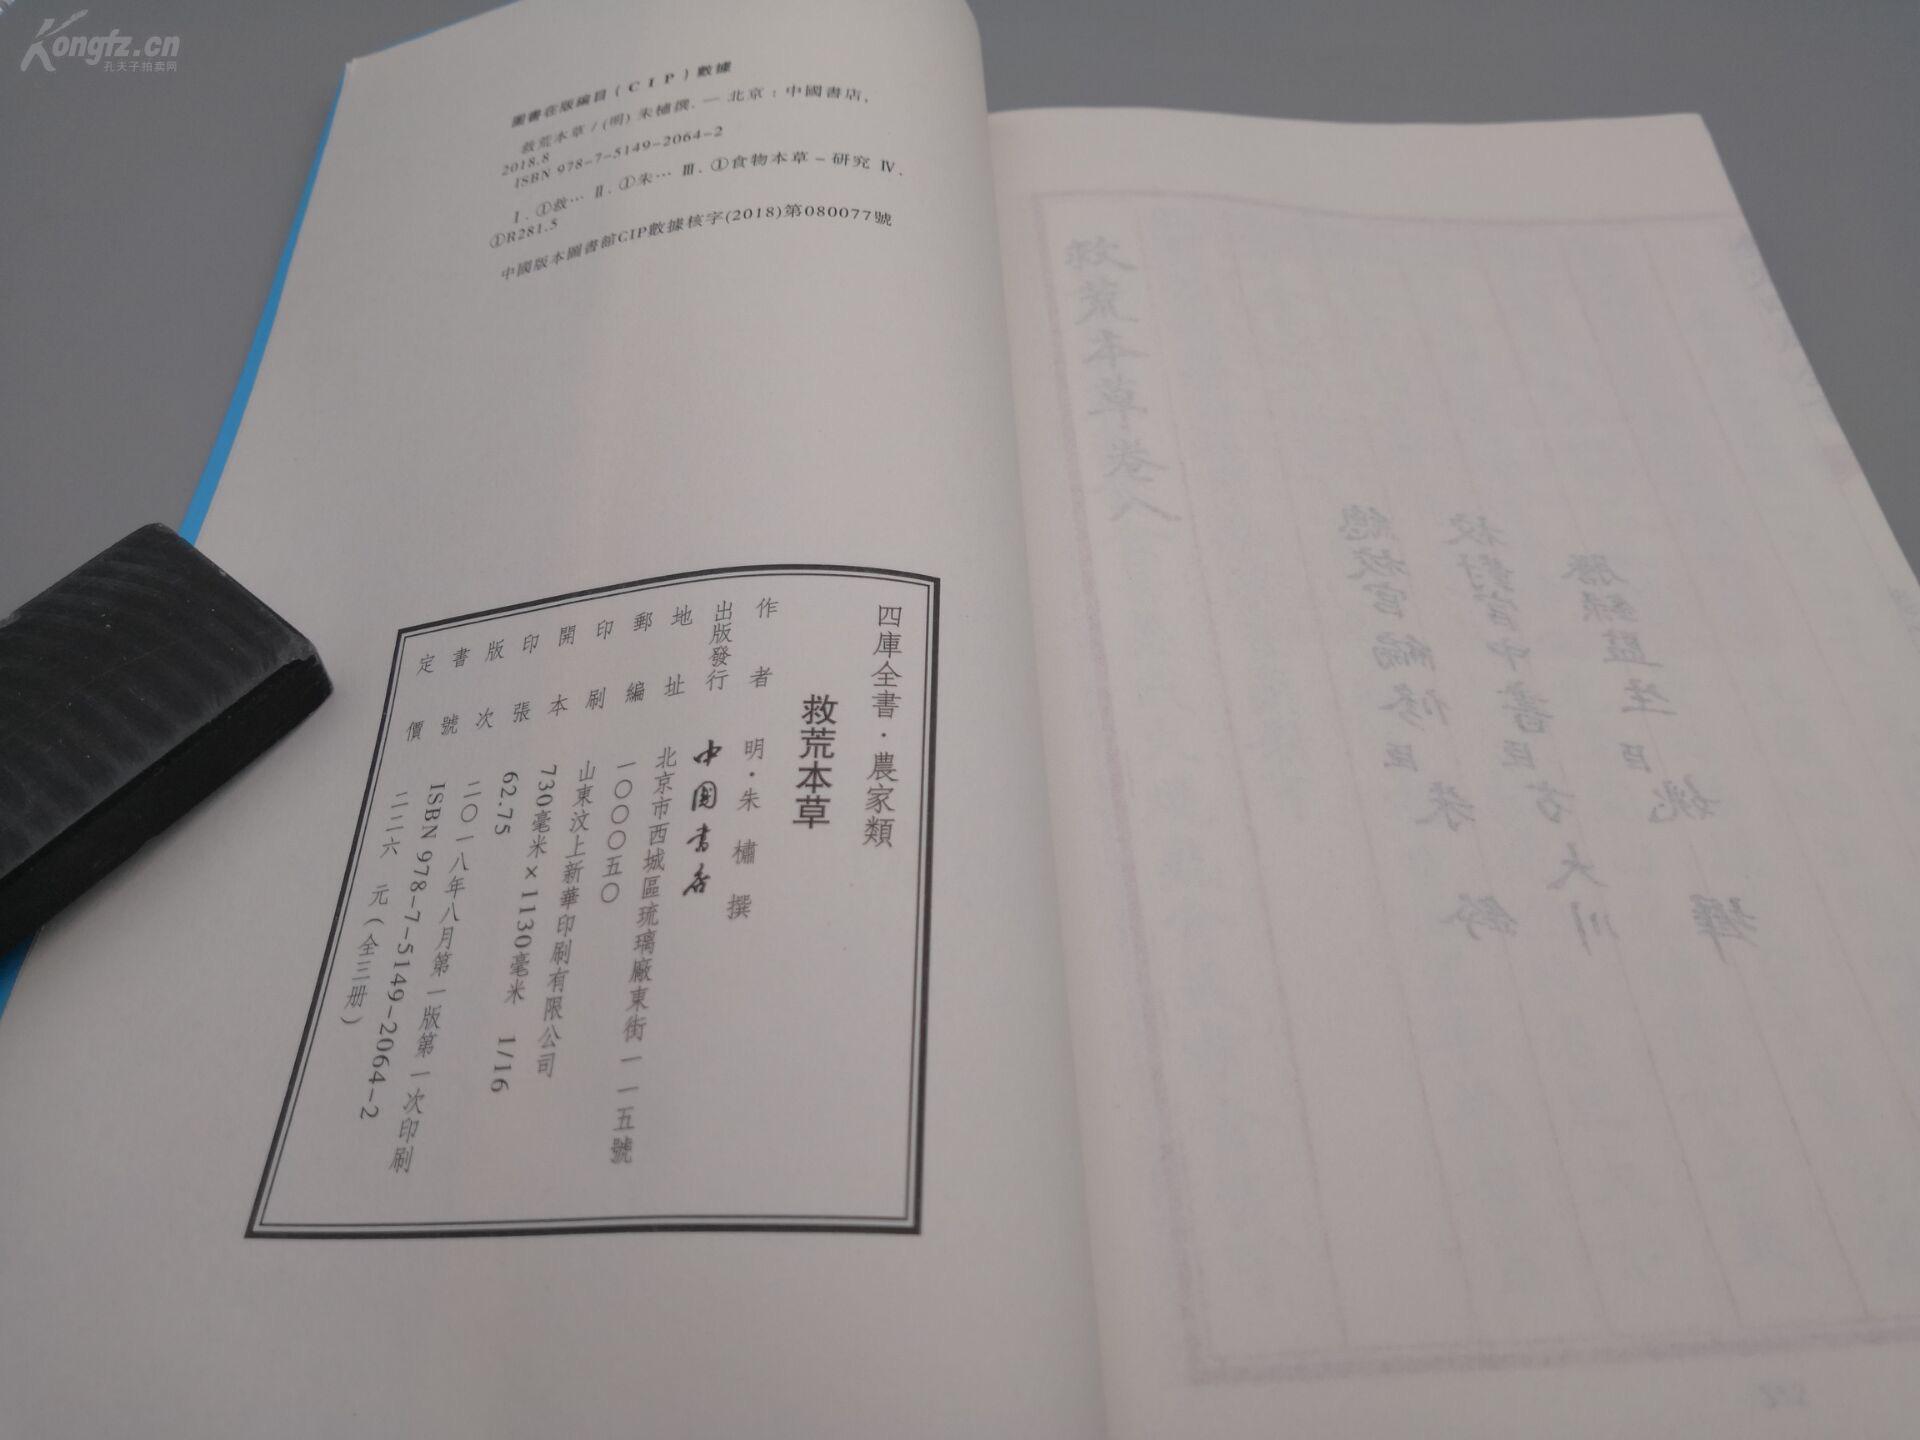 Kongfz.cn
孔夫子拍卖网
圖書在版編目(CIP)數據
救荒本草/(明)朱橚撰. — 北京:中國書店,
2018.8
ISBN 978-7-5149-2064-2
Ⅰ.①救… Ⅱ.①朱… Ⅲ.①食物本草－研究 Ⅳ.
①R281.5
中國版本圖書館CIP數據核字(2018)第080077號
四庫全書·農家類
救荒本草
作者 明·朱橚撰
出版發行 中國書店
地址 北京市西城區琉璃廠東街一一五號
郵編 一〇〇〇五〇
印刷 山東汶上新華印刷有限公司
開本 730毫米×1130毫米 1/16
印張 62.75
版次 二〇一八年八月第一版第一次印刷
書號 ISBN 978-7-5149-2064-2
定價 二二六 元(全三册)
救荒本草卷八
總校官編修臣朱鈐
校對官中書臣方大川
謄錄監生臣姚